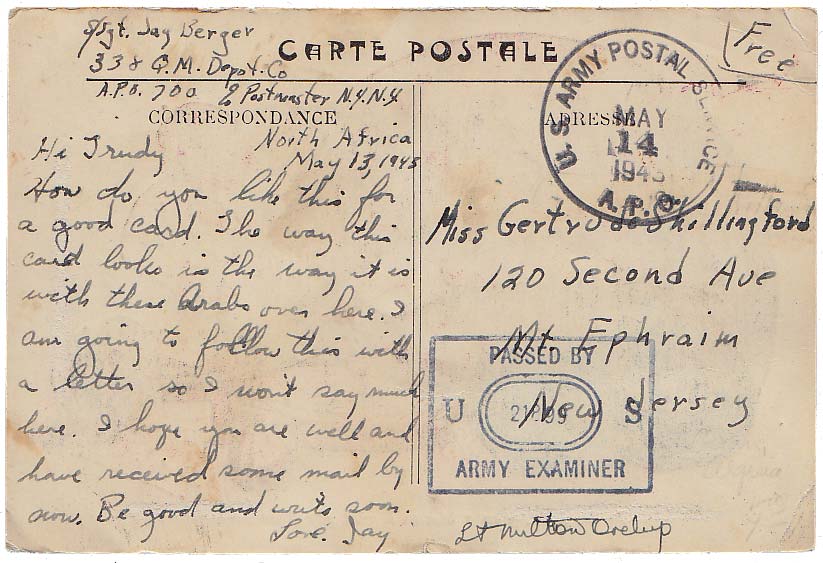 S/Sgt. Jay Berger
338 Q.M. Depot. Co
A.P.O. 700 % Postmaster N.Y. N.Y.
CARTE POSTALE
Free
CORRESPONDANCE
North Africa
May 13, 1945
Hi Trudy
How do you like this for
a good card. The way this
card looks is the way it is
with these Arabs over here. I
am going to follow this with
a letter so I won't say much
here. I hope you are well and
have received some mail by
now. Be good and write soon.
Love. Jay
U.S. ARMY POSTAL SERVICE
MAY
14
1945
A.P.O.
ADRESSE
Miss Gertrude Shillingford
120 Second Ave
Mt Ephraim
New Jersey
PASSED BY
U S
ARMY EXAMINER
Lt Milton